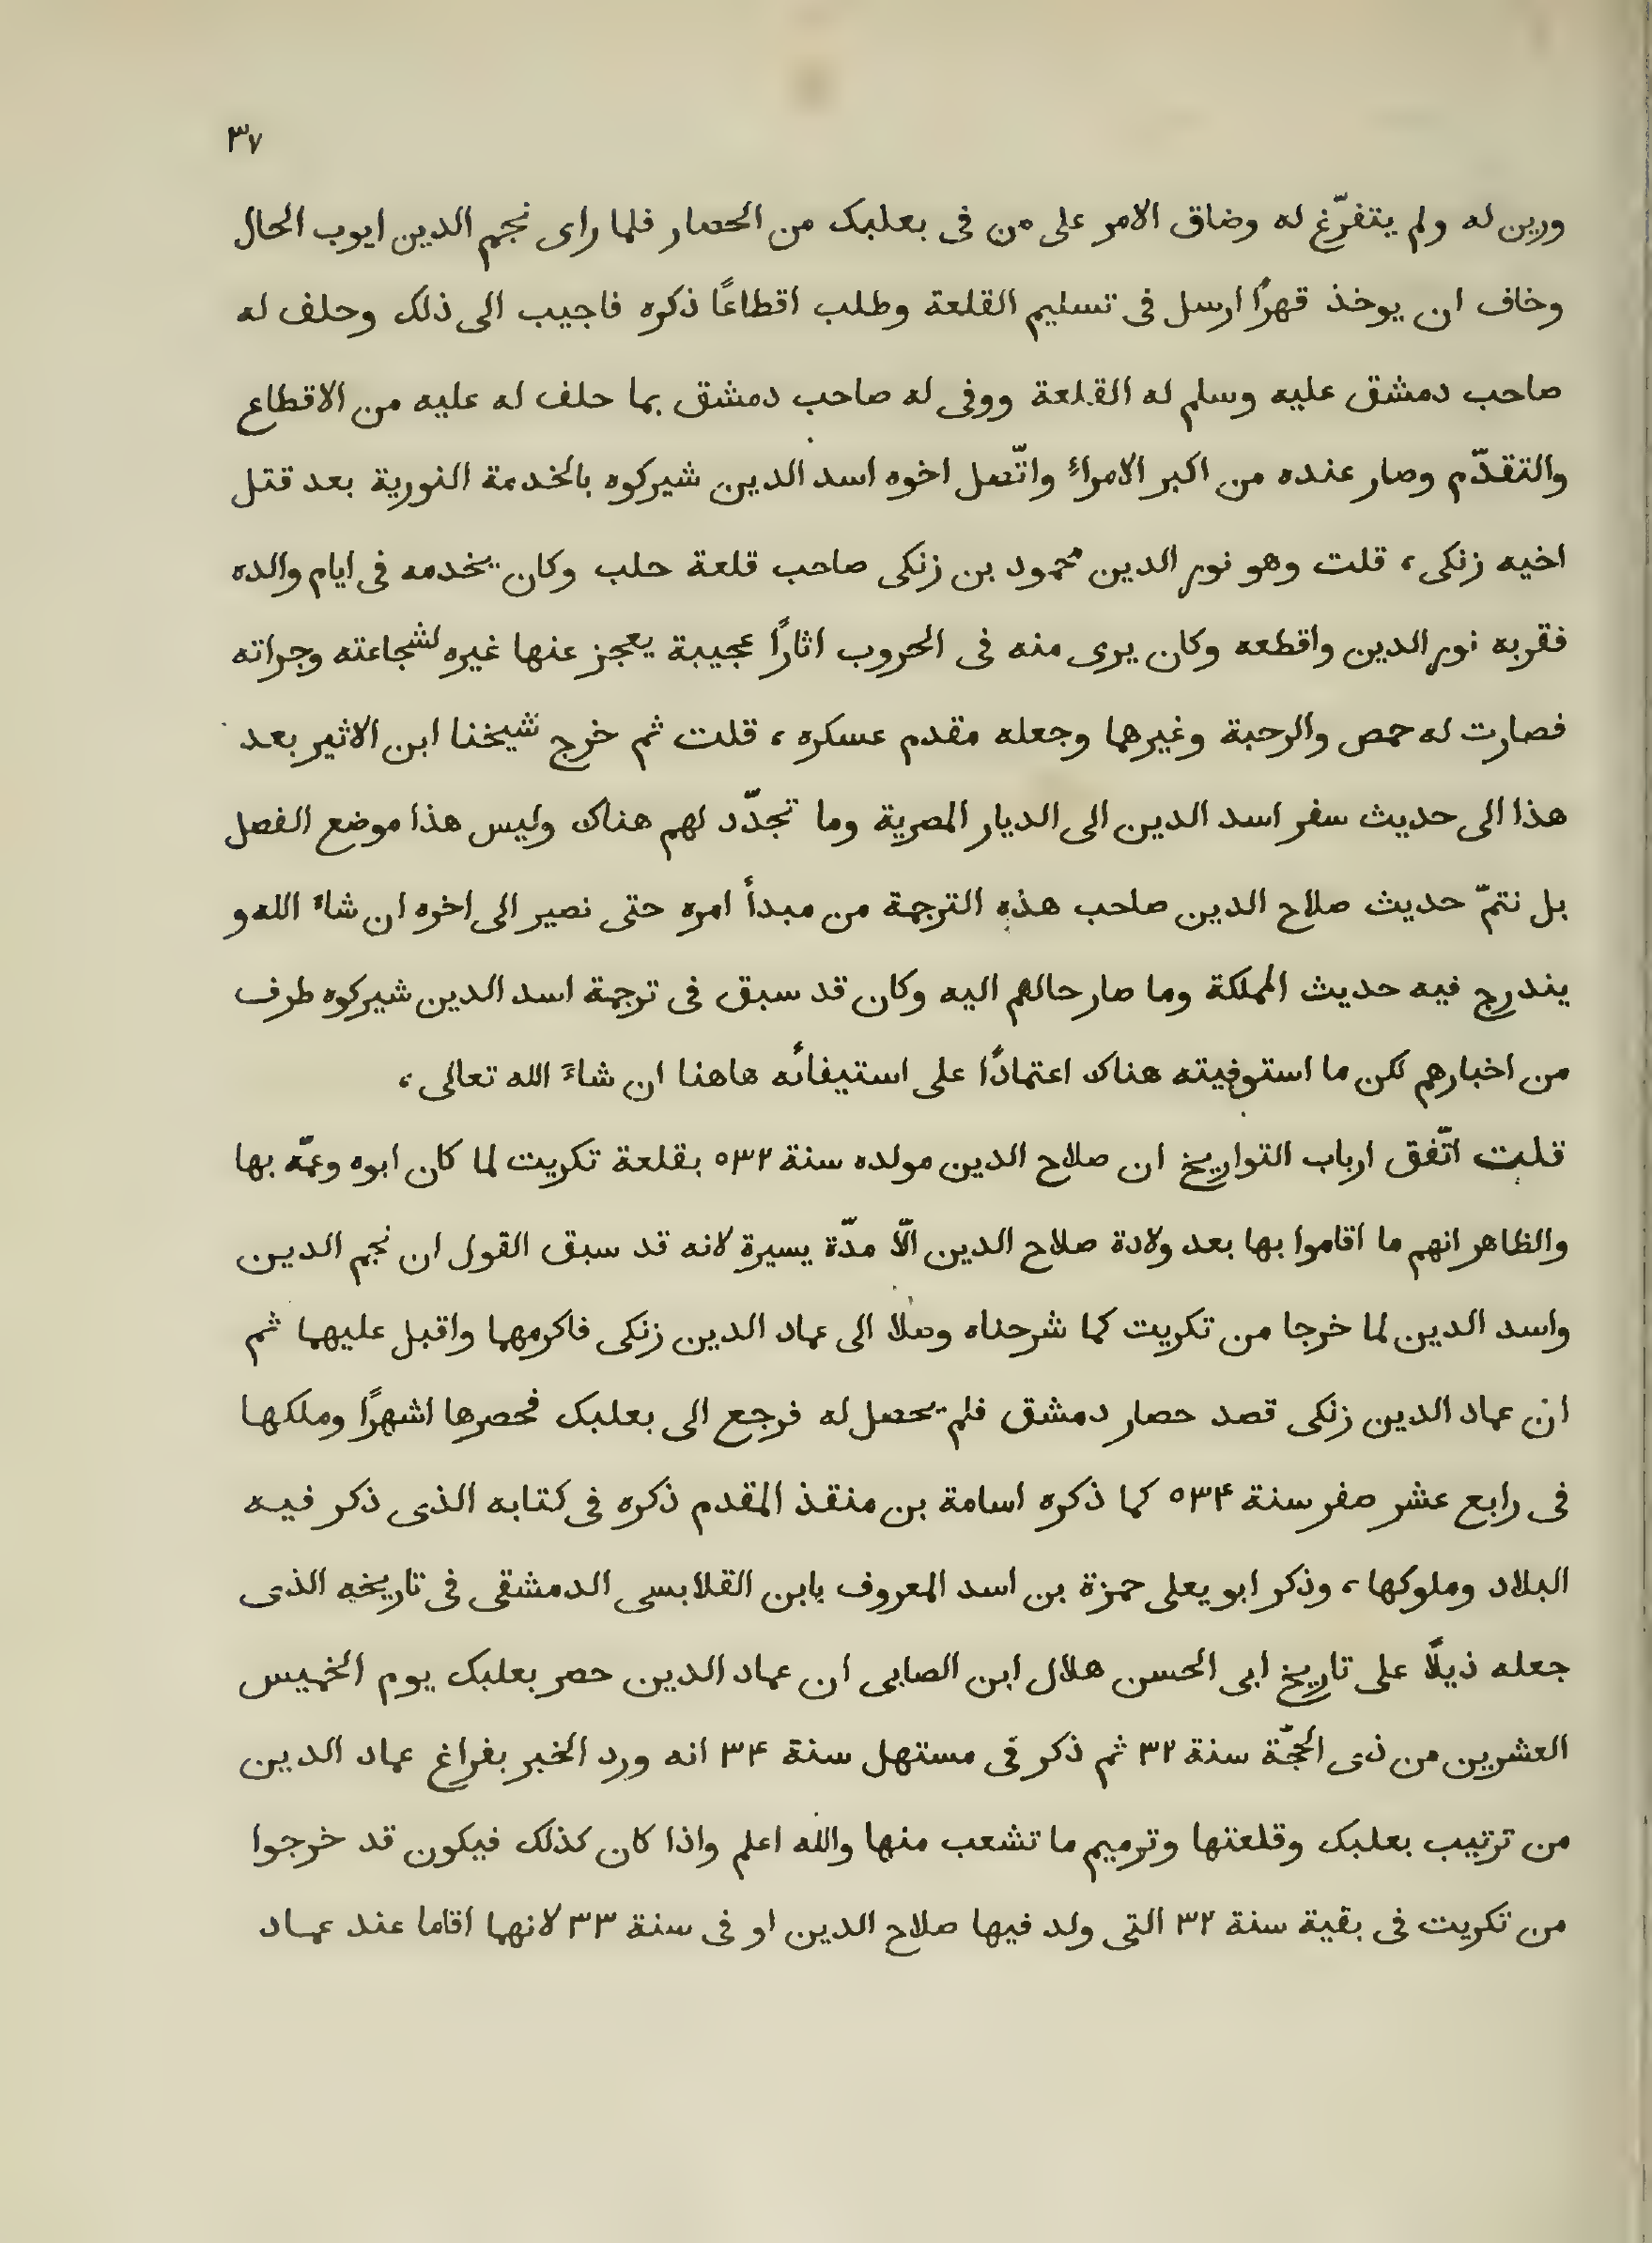 ٣٧
ورين له ولم يتفرّغ له وضاق الامر على من فى بعلبك من الحصار فلما راى نجم الدين ايوب الحال
وخاف ان يوخذ قهرًا ارسل فى تسليم القلعة وطلب اقطاعًا ذكره فاجيب الى ذلك وحلف له
صاحب دمشق عليه وسلم له القلعة ووفى له صاحب دمشق بما حلف له عليه من الاقطاع
والتقدّم وصار عنده من اكبر الامراء واتّصل اخوه اسد الدين شيركوه بالخدمة النورية بعد قتل
اخيه زنكى، قلت وهو نور الدين محمود بن زنكى صاحب قلعة حلب وكان يخدمه فى ايام والده
فقربه نور الدين واقطعه وكان يرى منه فى الحروب اثارًا عجيبة يعجز عنها غيره لشجاعته وجراته
فصارت له حمص والرحبة وغيرهما وجعله مقدم عسكره، قلت ثم خرج شيخنا ابن الاثير بعد
هذا الى حديث سفر اسد الدين الى الديار المصرية وما تجدّد لهم هناك وليس هذا موضع الفصل
بل نتمّ حديث صلاح الدين صاحب هذه الترجمة من مبدأ امره حتى نصير الى اخره ان شاء الله و
يندرج فيه حديث المملكة وما صار حالهم اليه وكان قد سبق فى ترجمة اسد الدين شيركوه طرف
من اخبارهم لكن ما استوفيته هناك اعتمادًا على استيفائه هاهنا ان شاءَ الله تعالى،
قلت اتّفق ارباب التواريخ ان صلاح الدين مولده سنة ٥٣٢ بقلعة تكريت لما كان ابوه وعمّه بها
والظاهر انهم ما اقاموا بها بعد ولادة صلاح الدين الّا مدّة يسيرة لانه قد سبق القول ان نجم الدين
واسد الدين لما خرجا من تكريت كما شرحناه وصلا الى عماد الدين زنكى فاكرمهما واقبل عليهما ثم
ان عماد الدين زنكى قصد حصار دمشق فلم يحصل له فرجع الى بعلبك فحصرها اشهرًا وملكها
فى رابع عشر صفر سنة ٥٣۴ كما ذكره اسامة بن منقذ المقدم ذكره فى كتابه الذى ذكر فيه
البلاد وملوكها، وذكر ابو يعلى حمزة بن اسد المعروف بابن القلابسى الدمشقى فى تاريخه الذى
جعله ذيلًا على تاريخ ابى الحسن هلال ابن الصابى ان عماد الدين حصر بعلبك يوم الخميس
العشرين من ذى الحجّة سنة ٣٢ ثم ذكر فى مستهل سنة ٣۴ انه ورد الخبر بفراغ عماد الدين
من ترتيب بعلبك وقلعتها وترميم ما تشعب منها والله اعلم واذا كان كذلك فيكون قد خرجوا
من تكريت فى بقية سنة ٣٢ التى ولد فيها صلاح الدين او فى سنة ٣٣ لانهما اقاما عند عماد